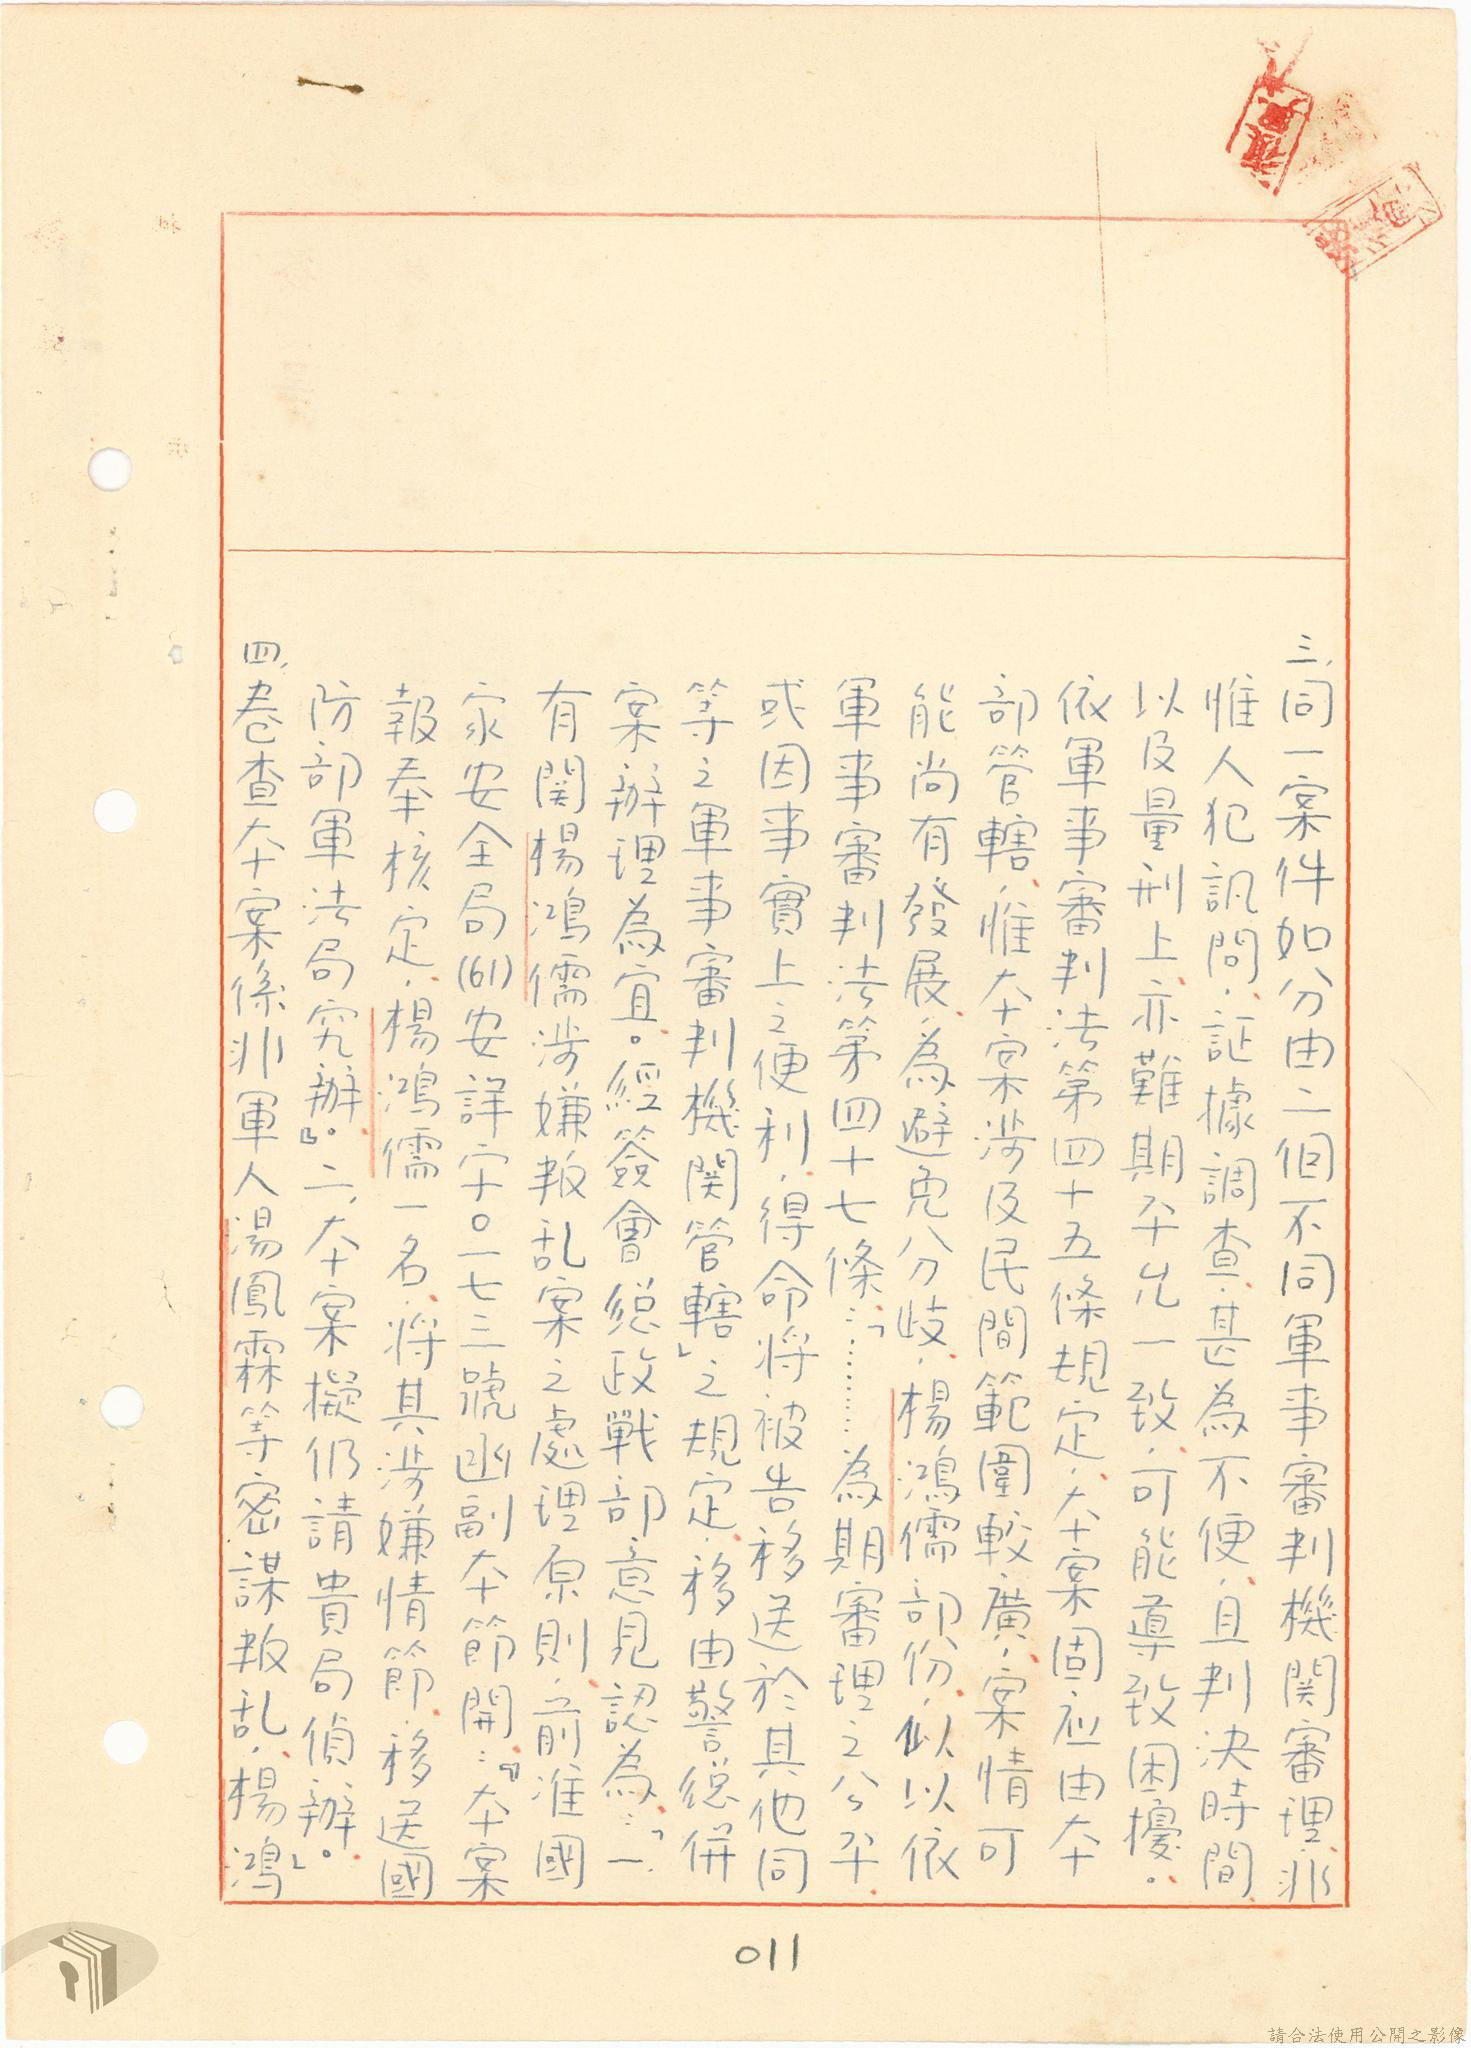 三、同一案件如分由二個不同軍事審判機関審理，非
惟人犯訊問，証據調查，甚為不便，且判決時間
以及量刑上，亦難期平允一致，可能導致困擾。
依軍事審判法第四十五條規定，本案固应由本
部管轄，惟本案涉及民間範圍較廣，案情可
能尚有發展，為避免分歧，楊鴻儒部份，似以依
軍事審判法第四十七條：「………為期審理之公平
或因事實上之便利，得命將被告移送於其他同
等之軍事審判機関管轄」之規定，移由警總併
案辦理為宜。經簽會總政戰部意見認為：「一、
有関楊鴻儒涉嫌叛乱案之處理原則，前准國
家安全局(61)安詳字○一七三號函副本節開：『本案
報奉核定，楊鴻儒一名，將其涉嫌情節，移送國
防部軍法局究辦』。二、本案擬仍請貴局偵辦。」
四、卷查本案係非軍人湯鳳霖等密謀叛乱，楊鴻
011
請合法使用公開之影像